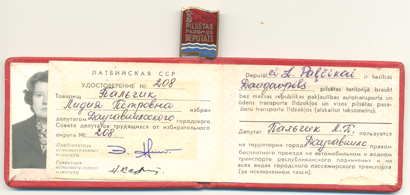 PILSĒTAS
PADOMES
DEPUTĀTS
ЛАТВИЙСКАЯ ССР
УДОСТОВЕРЕНИЕ № 208
Товарищ Пальчик
Лидия Петровна
избран
депутатом Даугавпилсского городского
Совета депутатов трудящихся от избирательного
округа № 208.
Deputāt ei L. Paļčikai ir tiesības
Daugavpils pilsētas teritorijā braukt
bez maksas republikas pakļautības autotransporta un
ūdens transporta līdzekļos un visos pilsētas pasažieru
transporta līdzekļos (atskaitot taksometru).
Депутат Пальчик Л.П. пользуется
на территории города Даугавпилс
правом
бесплатного проезда на автомобильном и водном
транспорте республиканского подчинения и на
всех видах городского пассажирского транспорта
(за исключением такси).